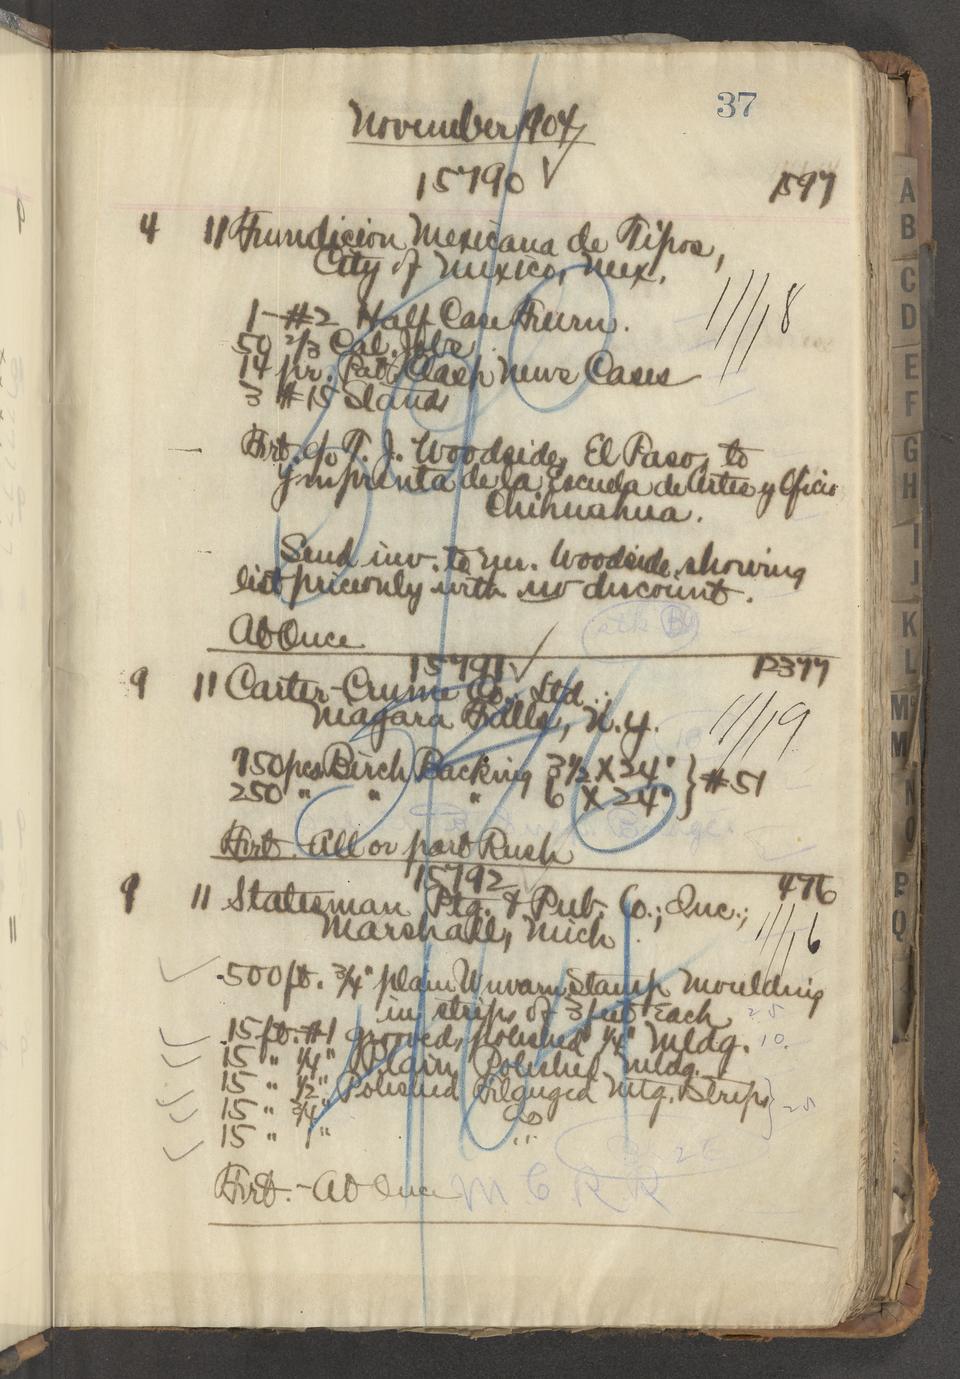 37
November 1904
15790 ✓
1597
4 11 Fundicion Mexicana de Tipos,
City of Mexico, Mex.
11/18
1-#2 Half Case Frurn.
50 2/3 Cal. Jobs
14 pr. Patt. Clasp News Cases
3 #15 Stands
Frt. % T. J. Woodside, El Paso, to
Ymprenta de la Escuela de Artes y Oficios
Chihuahua.
Send inv. to Mr. Woodside, showing
list price only with no discount.
At Once
15791 ✓
P2377
9 11 Carter-Crume Co., Ltd.
Niagara Falls, N.Y.
11/19
750 pcs Birch Backing 3 1/2 X 24" } #51
250 " " " 6 X 24"
Frt. All or part Rush
15792
476
9 11 Statesman Ptg. & Pub. Co., Inc.,
Marshall, Mich.
11/16
500 ft. 3/4" plain Unvarn. Stamp Moulding
in strips of 3 feet Each 25
15 ft. #1 grooved, polished 1/4" Mldg. 10.
15 " 1/4" Plain Polished Mldg.
15 " 1/2" Polished Mtg. Strips
15 " 3/4" " 25
15 " 1" "
Frt. - At Once M C R R
A
B
C
D
E
F
G
H
I
J
K
L
M
M
N
O
P
Q